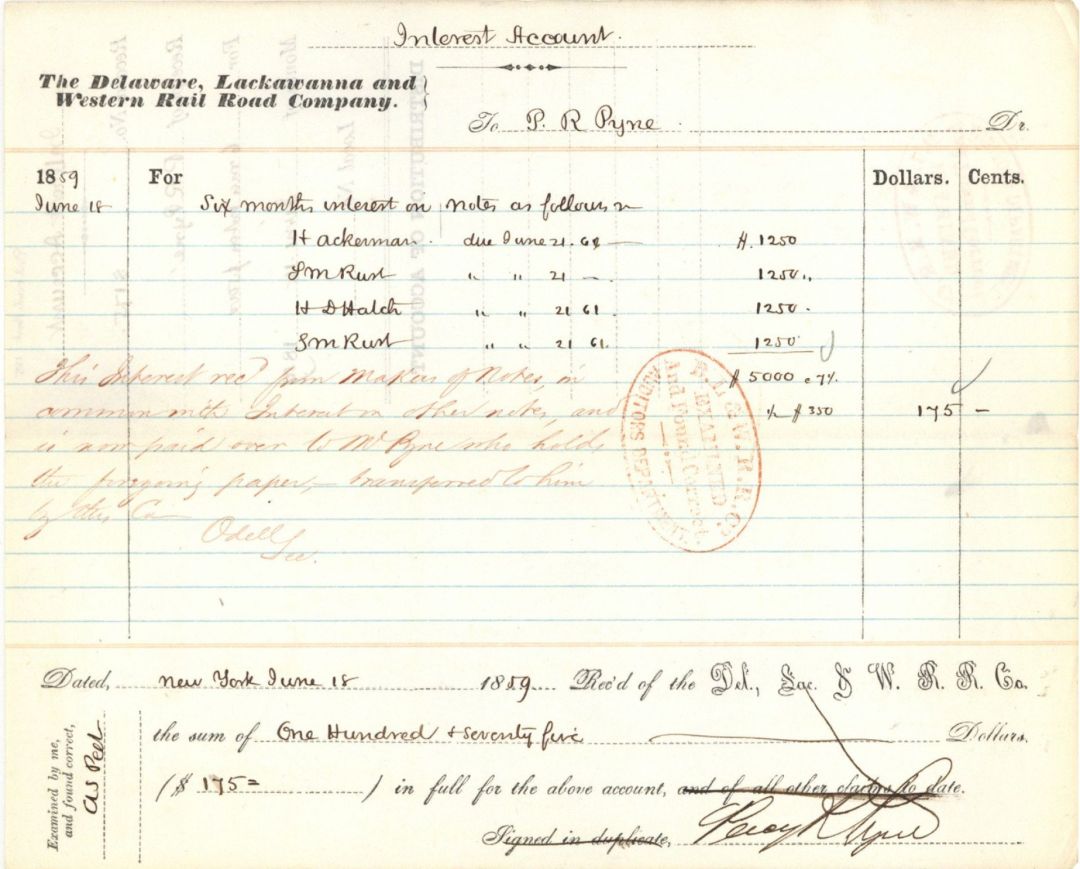 Interest Account.
The Delaware, Lackawanna and
Western Rail Road Company.
To P. R Pyne Dr.
1859 For Dollars. Cents.
June 18 Six months interest on notes as follows
H Ackerman. due June 21. 61 — $. 1250
S M Rust " " 21 — 1250 "
H D Hatch " " 21 61. 1250 .
S M Rust " " 21 61. 1250
This Interest rec'd from Makers of Notes, in $ 5000 @ 7%.
common with Interest on other notes, and ½ $ 350 175 —
is now paid over to Mr Pyne who holds
the foregoing paper, — transferred to him
by this Co
Odell
Sec.
D. L. & W. R. R. Co.
EXAMINED
And Found Correct
AUDITORS DEPARTMENT.
Dated, New York June 18 1859 Rec'd of the Del., Lac. & W. R. R. Co.
the sum of One Hundred + Seventy five Dollars.
($ 175= ) in full for the above account, and of all other claims to date.
Signed in duplicate, Percy R Pyne
Examined by me,
and found correct,
AS Peet